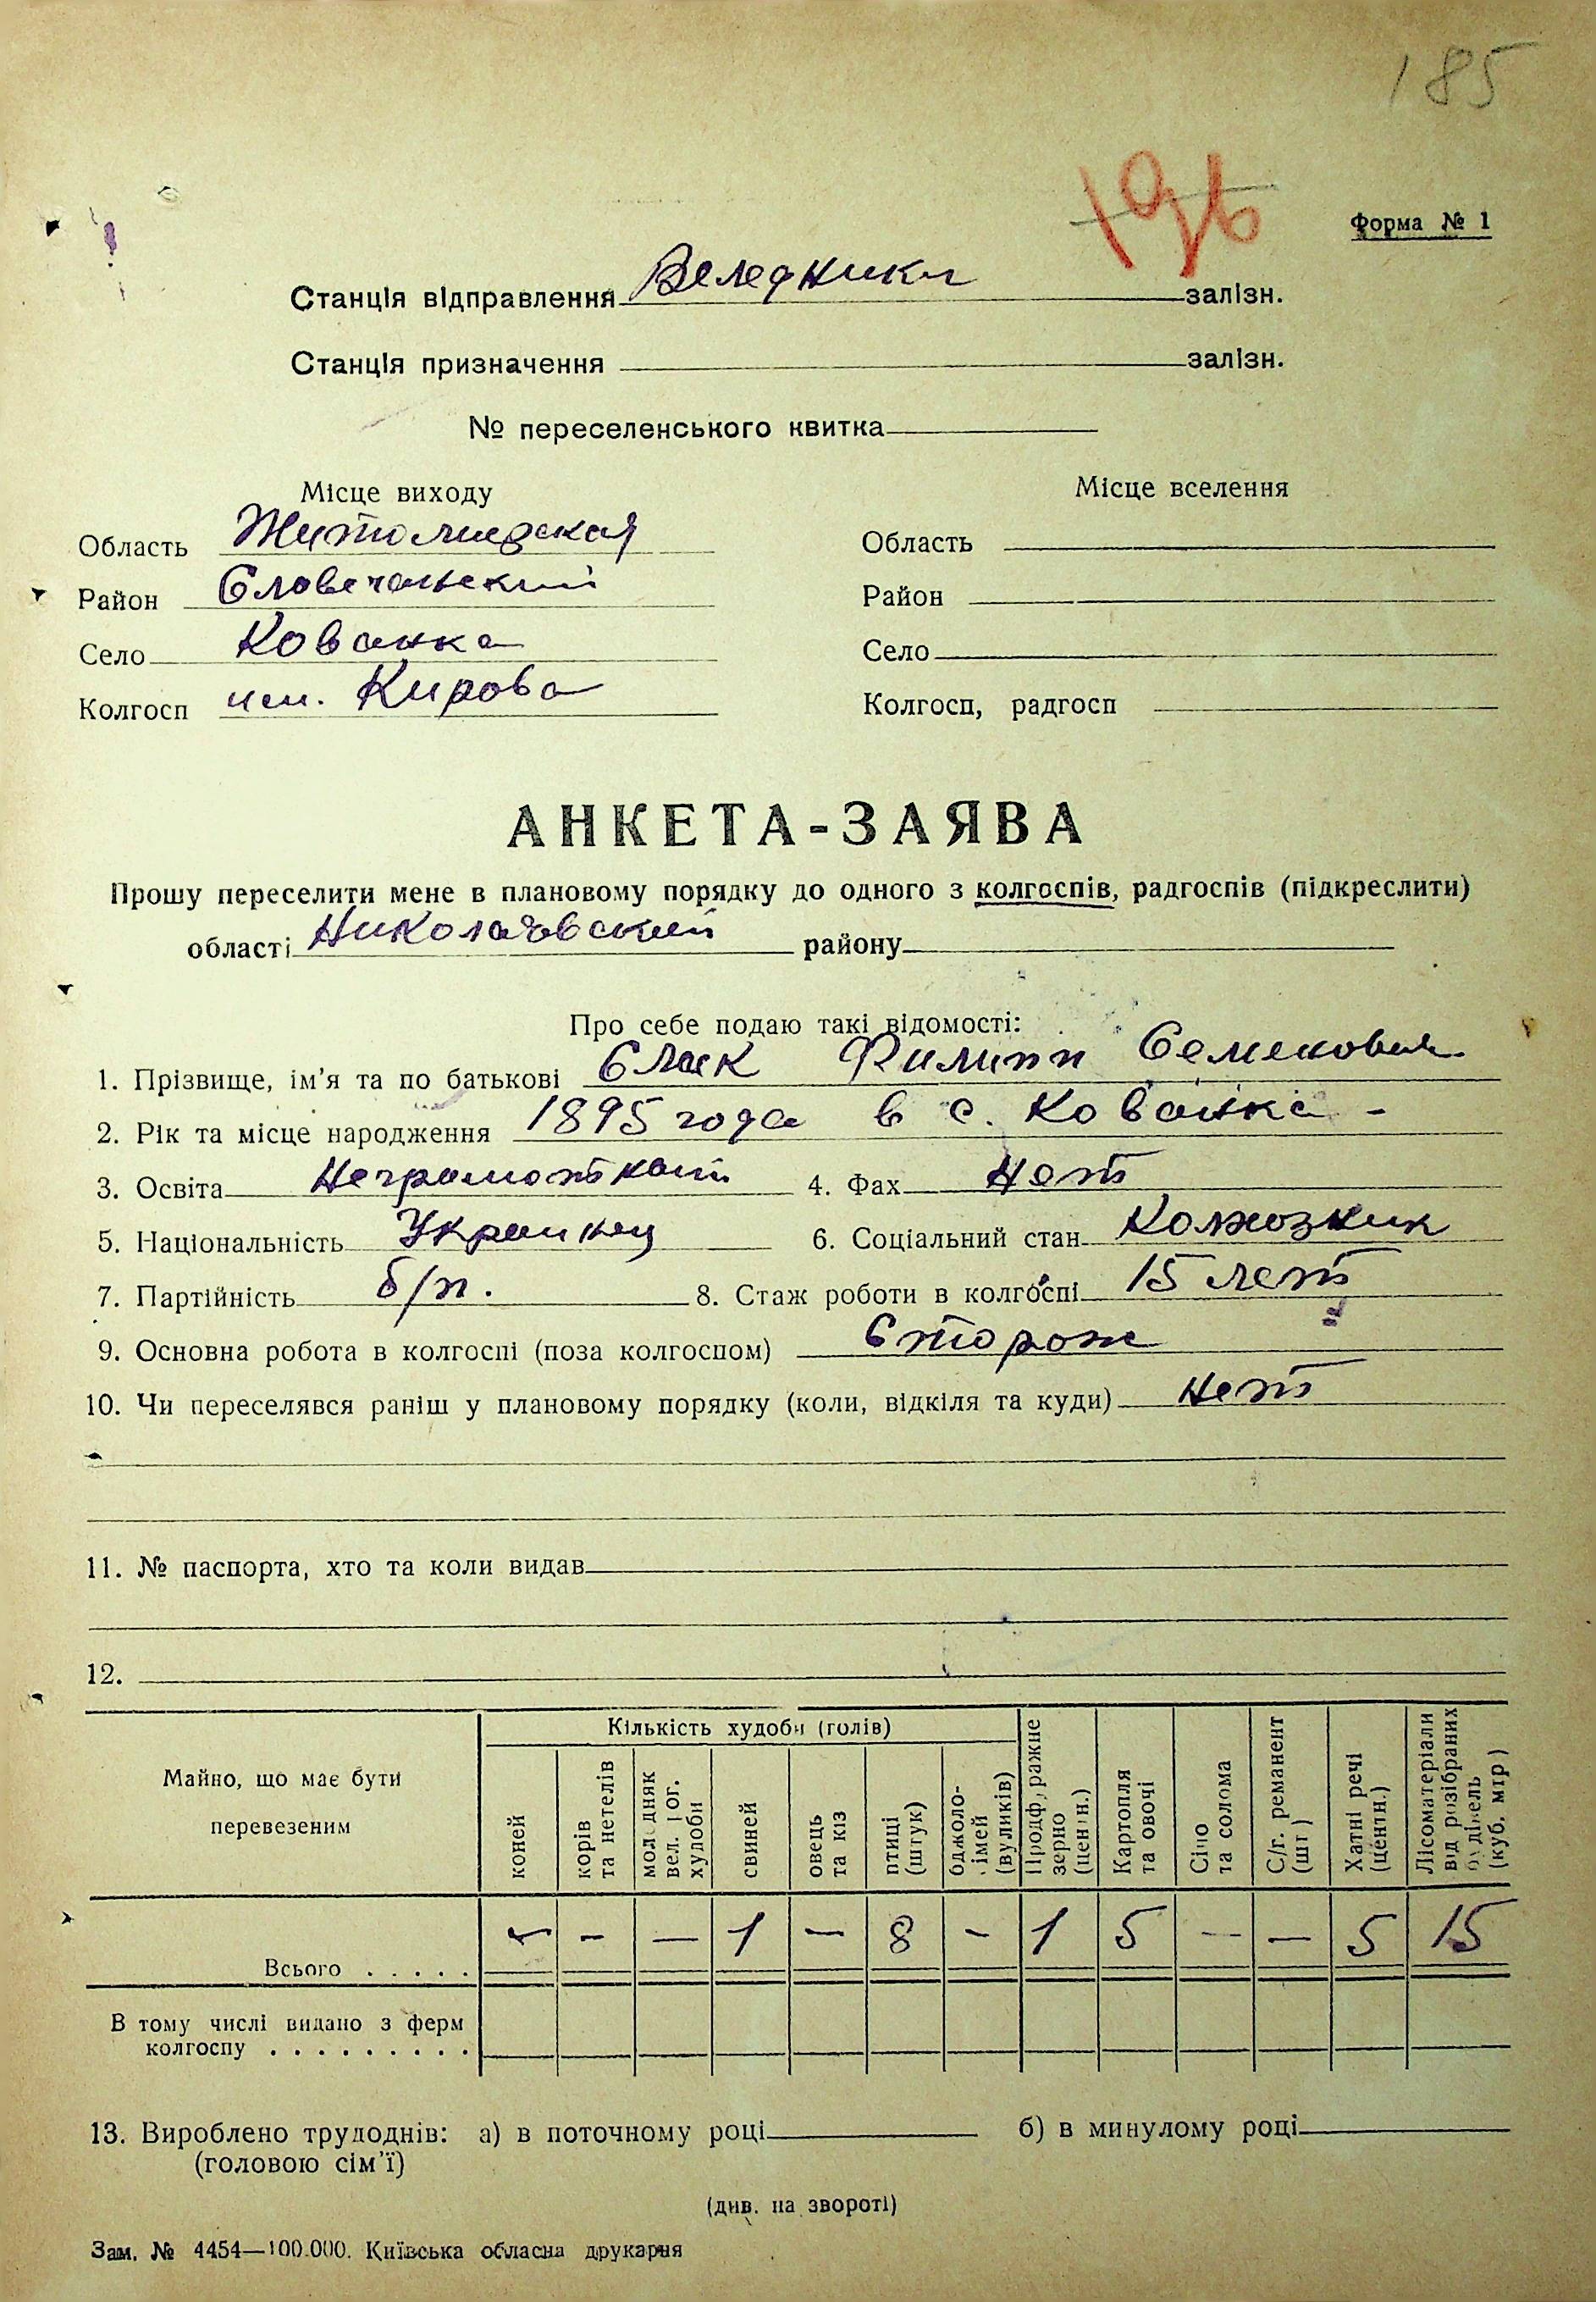 185
196
Форма № 1
Станція відправлення Веледники залізн.
Станція призначення залізн.
№ переселенського квитка
Місце виходу
Область Житомирская
Район Словечанский
Село Кованка
Колгосп им. Кирова
Місце вселення
Область
Район
Село
Колгосп, радгосп
АНКЕТА-ЗАЯВА
Прошу переселити мене в плановому порядку до одного з колгоспів, радгоспів (підкреслити)
області Николаевский району
Про себе подаю такі відомості:
1. Прізвище, ім'я та по батькові Филипп Семенович
2. Рік та місце народження 1895 года в с. Кованка -
3. Освіта Неграмотный 4. Фах Нет
5. Національність Украинец 6. Соціальний стан Колхозник
7. Партійність б/п. 8. Стаж роботи в колгоспі 15 лет
9. Основна робота в колгоспі (поза колгоспом) Сторож
10. Чи переселявся раніш у плановому порядку (коли, відкіля та куди) Нет
11. № паспорта, хто та коли видав
12.
Майно, що має бути перевезеним
Кількість худоби (голів)
коней
корів та нетелів
молодняк вел. рог. худоби
свиней
овець та кіз
птиці (штук)
бджоло-сімей (вуликів)
Продфуражне зерно (центн.)
Картопля та овочі
Сіно та солома
С/г. реманент (шт)
Хатні речі (центн.)
Лісоматеріали від розібраних будівель (куб. мтр)
Всього . . . . . - - — 1 — 8 - 1 5 — — 5 15
В тому числі видано з ферм
колгоспу . . . . . . . . .
13. Вироблено трудоднів: а) в поточному році б) в минулому році
(головою сім'ї)
(див. на звороті)
Зам. № 4454—100.000. Київська обласна друкарня